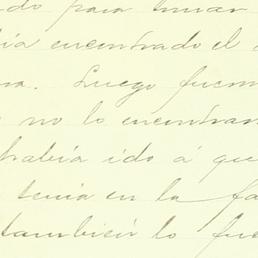 do para tomar
ía encontrado el
na. Luego fuem
no lo encontram
había ido á que
tenia en la fa
también lo fue